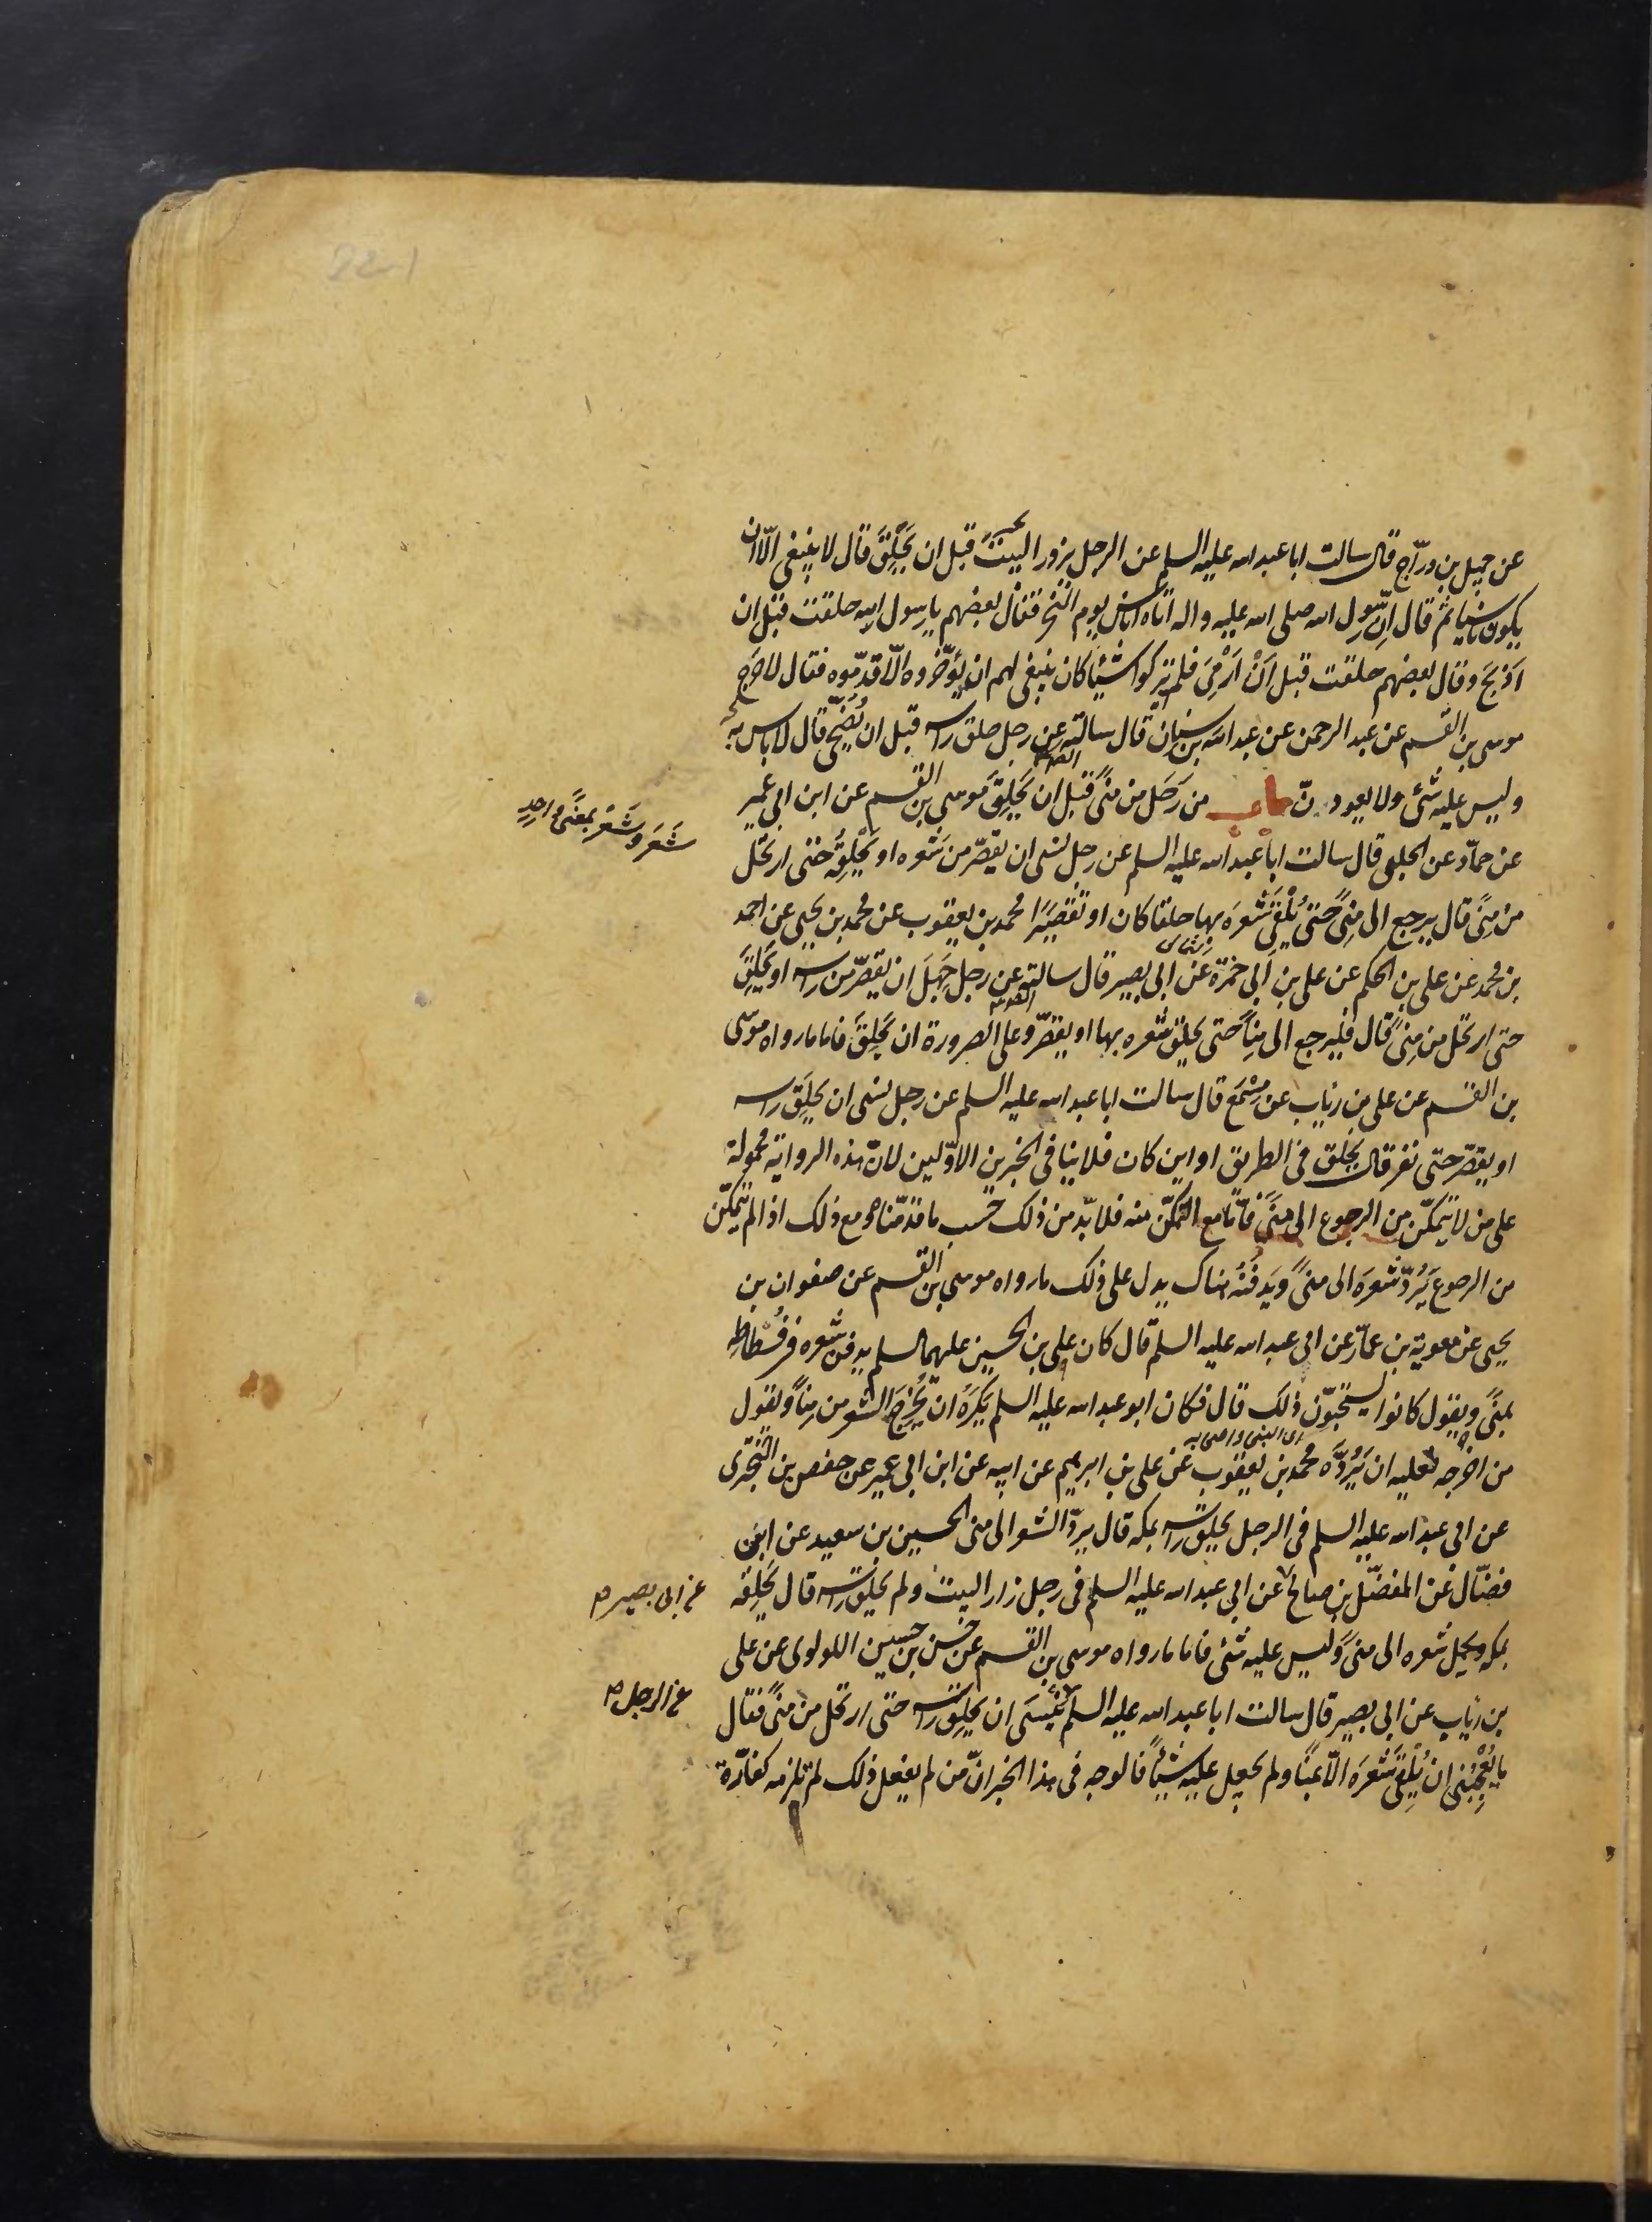 عن جميل بن درّاج قال سالت ابا عبد الله عليه السلم عن الرجل يزور البيت قبل ان يَحْلِقَ قال لا ينبغى الّا ان
يكون ناسيا ثم قال انّ رسول الله صلى الله عليه واله اتاه اناس يوم النّحر فقال بعضهم يا رسول الله حلقت قبل ان
اَذبَحَ وقال بعضهم حلقت قبل اَنْ اَرْمِىَ فلم يتركوا شيئا كان ينبغى لهم ان يُؤَخّروه الّا قدّموه فقال لا حَرَج
موسى بن القسم عن عبد الرحمن عن عبد الله بن سنان قال سالته عن رجل حلق راسه قبل ان يُضَحِّى قال لا باس به
وليس عليه شئ ولا يعودنّ باب من رَحَل من مِنًى قبل ان يَحْلِقَ موسى بن القسم عن ابن ابى عمير
شَعَر وشَعْر بمعنًى واحدٍ
عن حمّاد عن الحلبى قال سالت ابا عبد الله عليه السلم عن رجل نسى ان يقصّر من شعره او يَحْلِقَه حتى ارتحل
من مِنًى قال يرجع الى مِنًى حتى يُلْقِىَ شَعْرَه بها حلقا كان او تقصيرًا محمد بن يعقوب عن محمد بن يحيى عن احمد
بن محمد عن على بن الحكم عن على بن ابى حمزة عن ابى بصير قال سالته عن رجل جَهِلَ ان يقصّر من راسه او يَحْلِقَ
حتى ارتحل من مِنًى قال فليرجع الى مِنًا حتى يحلق شعره بها او يقصّر وعلى الصرورة ان يَحْلِقَ فاما ما رواه موسى
بن القسم عن على بن رئاب عن مِسْمَع قال سالت ابا عبد الله عليه السلم عن رجل نسى ان يحلِقَ راسه
او يقصّر حتى نفر قال يحلق فى الطريق او اين كان فلا ينافى الخبرين الاوّلين لانّ هذه الرواية محمولة
على من لا يتمكّن من الرجوع الى مِنًى فامّا مع التمكّن منه فلا بدّ من ذلك حسب ما قدّمناه ومع ذلك اذا لم يتمكّن
من الرجوع يَرُدّ شعرَه الى منًى ويَدفُنُه هناك يدل على ذلك ما رواه موسى بن القسم عن صفوان بن
يحيى عن معوية بن عمّار عن ابى عبد الله عليه السلم قال كان على بن الحسين عليهما السلم يدفن شعره فى فُسْطاطِه
بمنًى ويقول كانوا يستحبّون ذلك قال فكان ابو عبد الله عليه السلم يَكرَهُ ان يُخْرِجَ الشعر من مِنًا ويقول
من اخرجه فعليه ان يَرُدَّه محمد بن يعقوب عن على بن ابرهيم عن ابيه عن ابن ابى عمير عن حفص بن البَخْتَرى
عن ابى عبد الله عليه السلم فى الرجل يحلق راسه بمكه قال يردّ الشعر الى منى الحسين بن سعيد عن ابن
فضّال عن المفضّل بن صالح عن ابى عبد الله عليه السلم فى رجل زار البيت ولم يحلق راسه قال يَحْلِقه
عن ابى بصير
بمكه ويحمل شعره الى منًى وليس عليه شئ فاما ما رواه موسى بن القسم عن حَسَن بن حسين اللولوى عن على
بن رئاب عن ابى بصير قال سالت ابا عبد الله عليه السلم يَنْسَى ان يحلق راسه حتى ارتحل من منًى فقال
عن الرجل
ما يُعْجِبُنى ان يُلْقِىَ شَعْرَه الّا بمنًا ولم يجعل عليه شيئًا فالوجه فى هذا الخبر انّ من لم يفعل ذلك لم تلزمه كفّارة